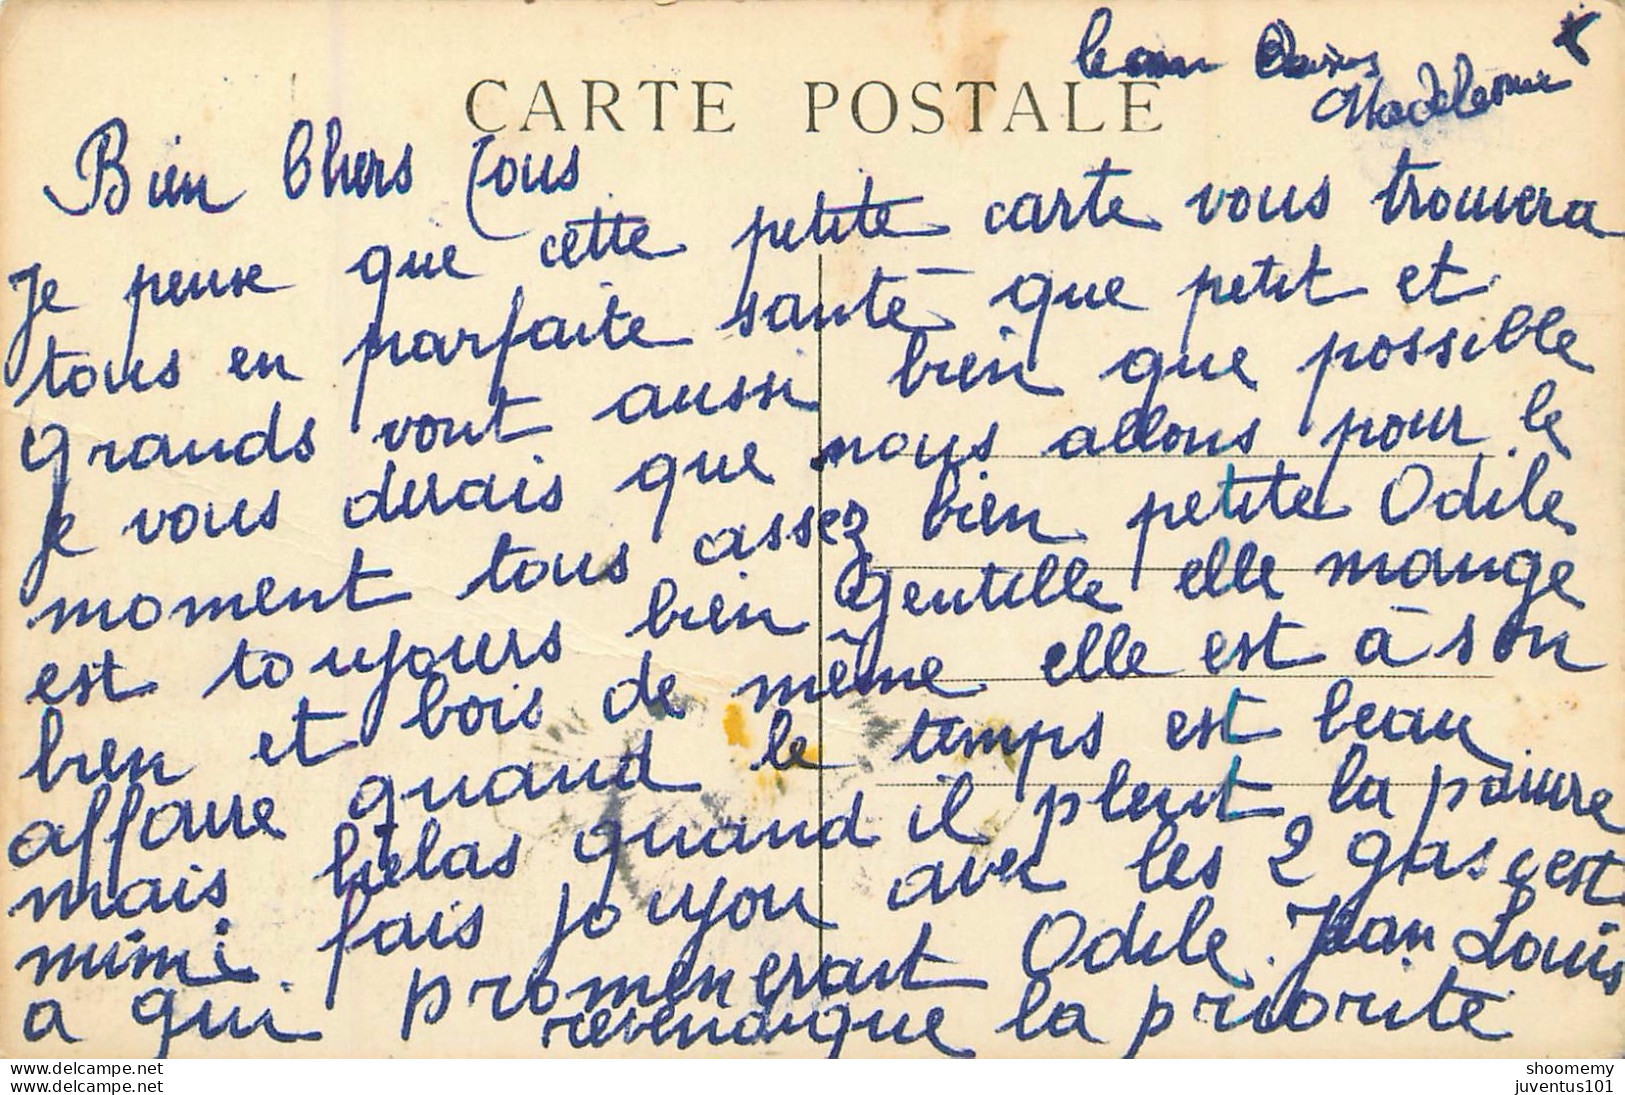 Madeleine
CARTE POSTALE
Bien Chers Tous
Je pense que cette petite carte vous trouvera
tous en parfaite santé que petit et
grands vont aussi bien que possible
je vous dirais que nous allons pour le
moment tous assez bien petite Odile
est toujours bien gentille elle mange
bien et bois de même elle est à son
affaire quand le temps est beau
mais hélas quand il pleut la pauvre
mimi fais joujou avec les 2 gas c'est
a qui promenerait Odile. Jean Louis
revendique la priorite
shoomemy
juventus101
delcampe.net
delcampe.net